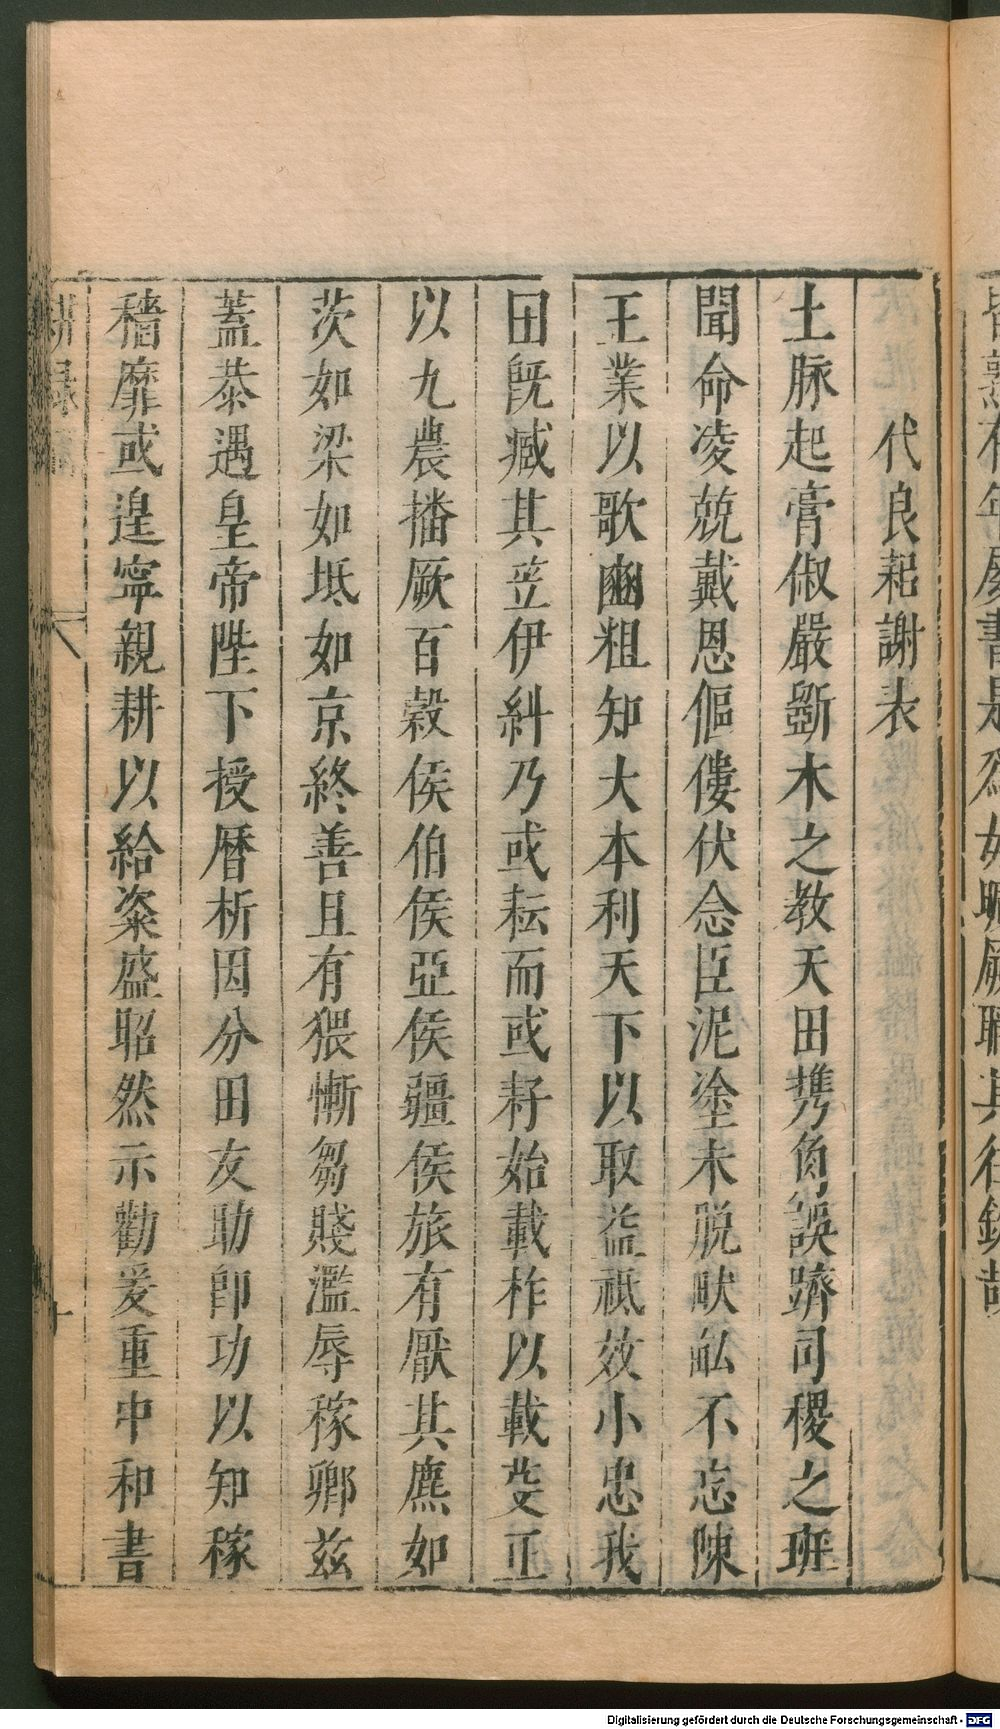 代良耜謝表
土脉起膏俶嚴斲木之教天田携負誤躋司稷之班
聞命凌兢戴恩傴僂伏念臣泥塗未脱畎畝不忘陳
王業以歌豳粗知大本利天下以取益祗效小忠我
田旣臧其笠伊糾乃或耘而或耔始載柞以載芟正
以九農播厥百榖侯伯侯亞侯疆侯旅有厭其麃如
茨如梁如坻如京終善且有猥慚芻賤濫辱稼卿兹
蓋恭遇皇帝陛下授暦析因分田友助卽功以知稼
穡靡或遑寧親耕以給粢盛昭然示勸爰重中和書
耕祿藁
十
Digitalisierung gefördert durch die Deutsche Forschungsgemeinschaft - DFG